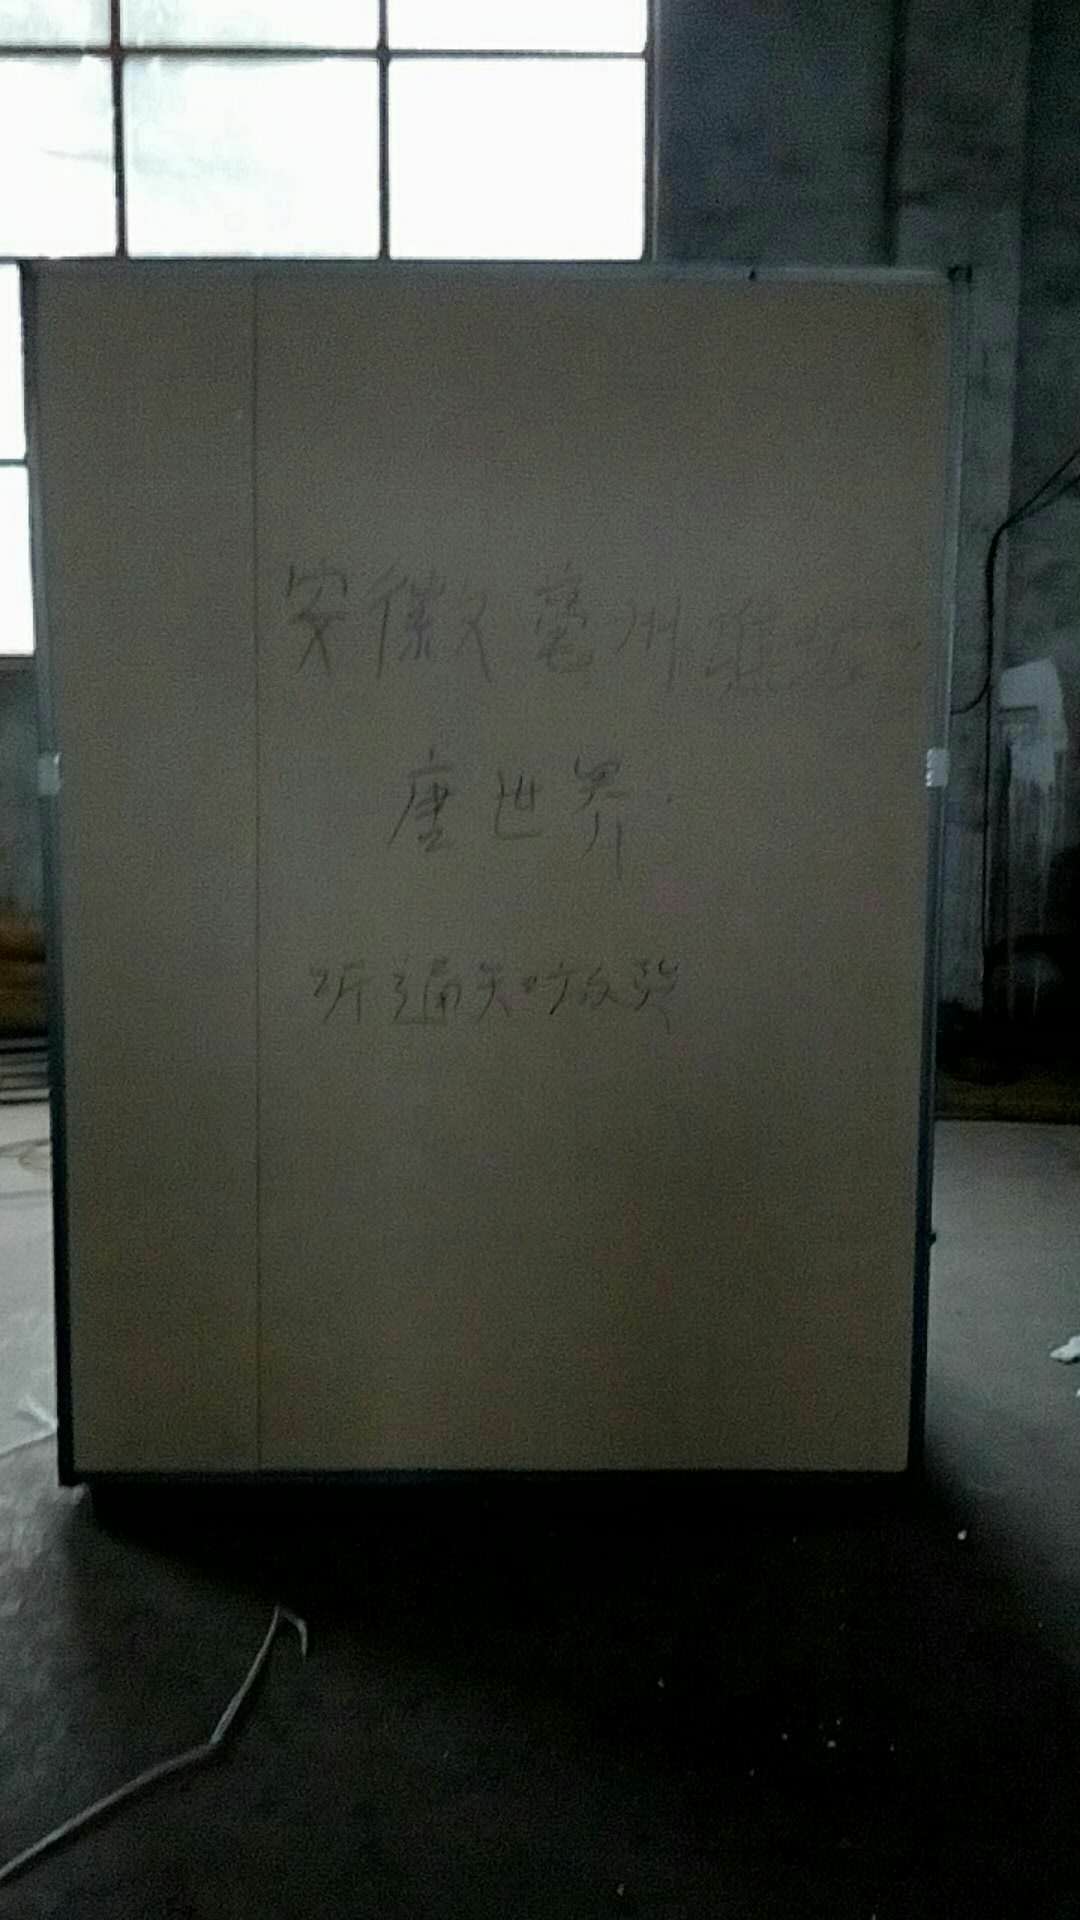 安徽亳州
唐世界
听通知放货